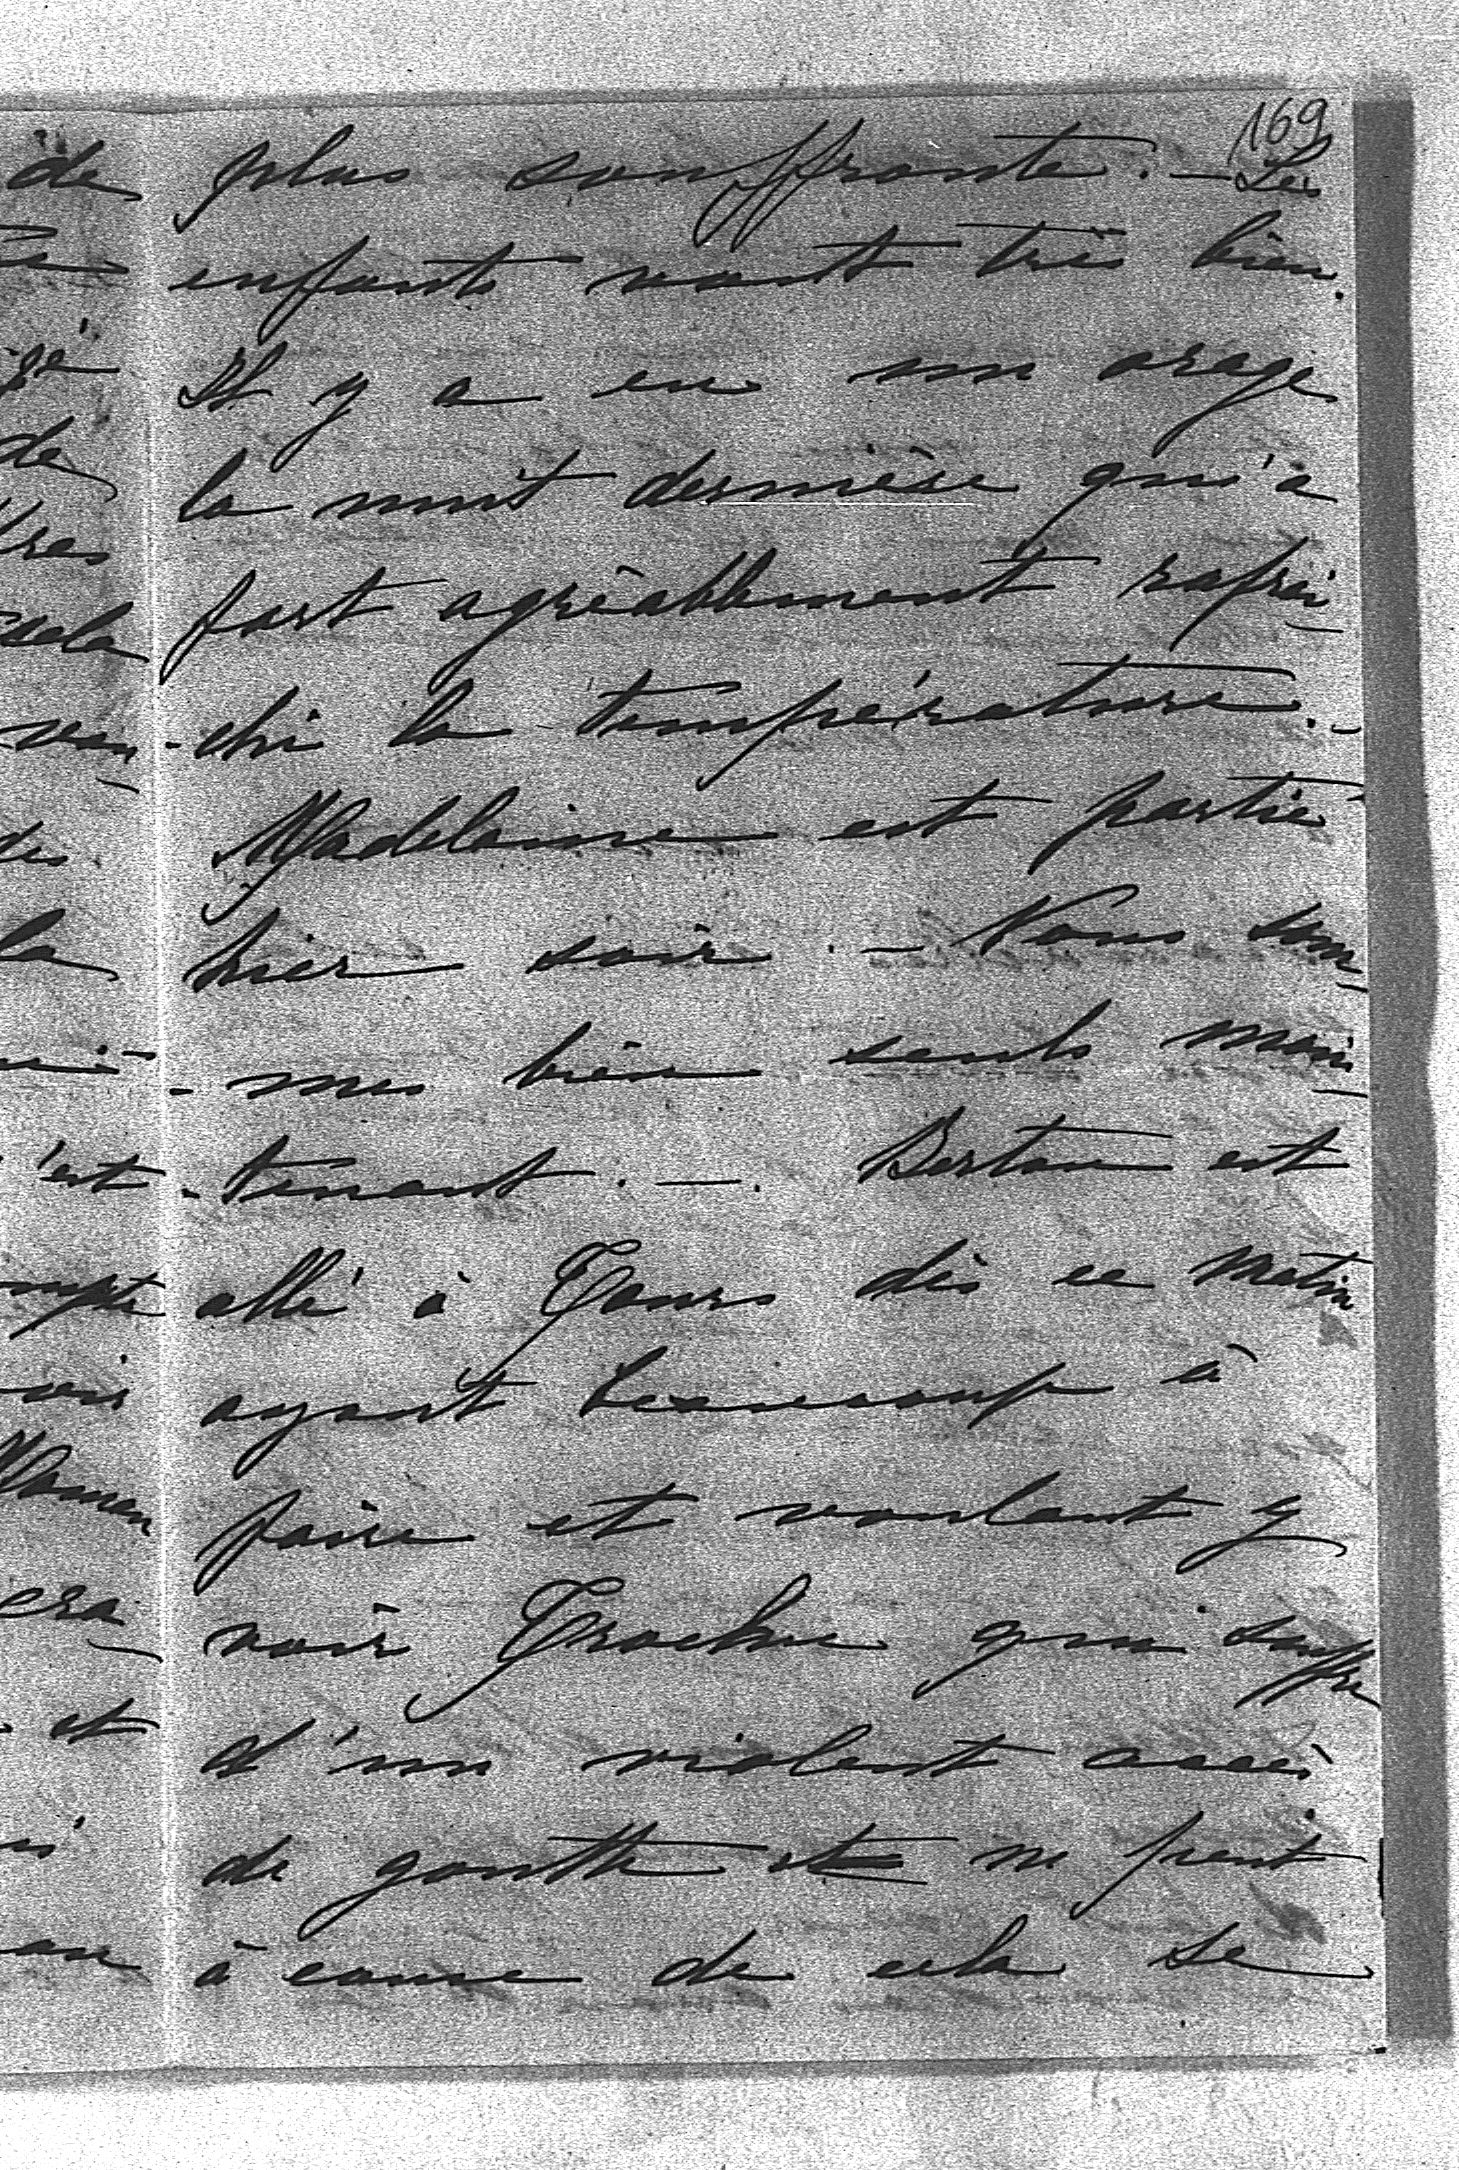 169
plus souffrante. — Les
enfants vont très bien.
Il y a eu un orage
la nuit dernière qui a
fort agréablement rafraî-
-chi la température. -
Madeleine est partie
hier soir. — Nous som-
-mes bien seuls main-
-tenant. —. est
allé à Tours dès ce matin
ayant beaucoup à
faire et voulant y
voir Trochu qui souffre
d'un violent accès
de goutte et ne peut
à cause de cela se